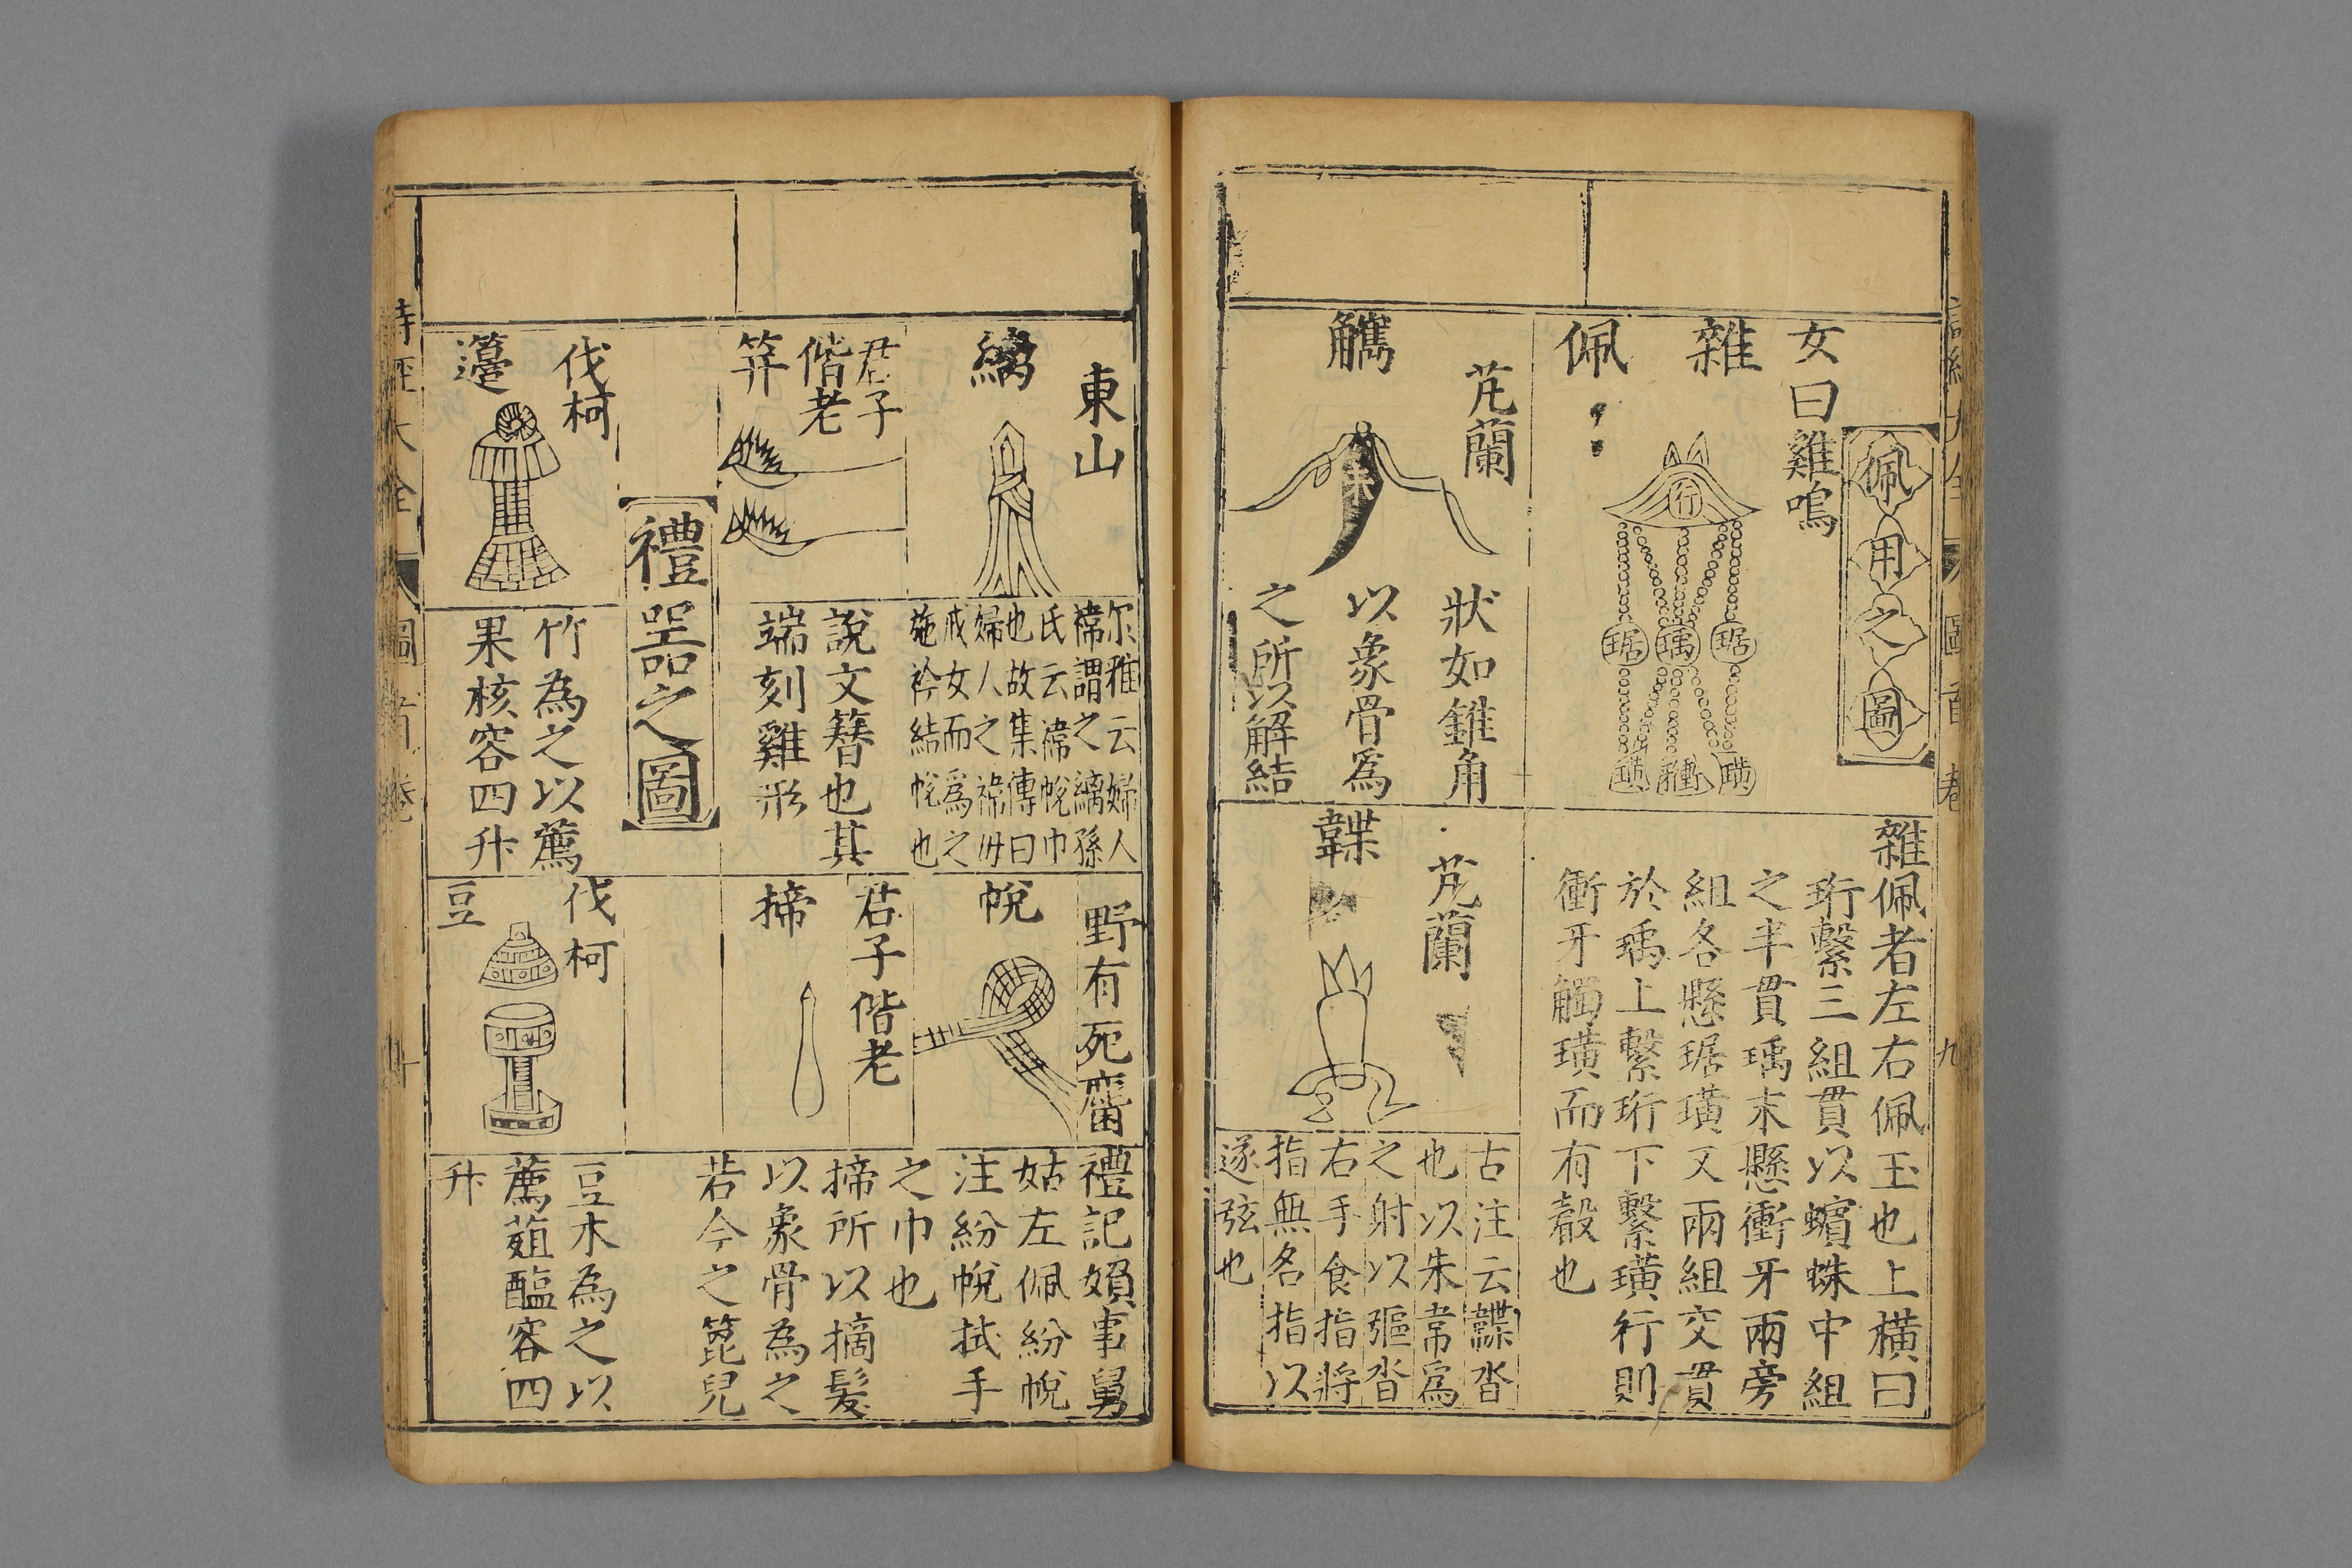 佩用之圖
女曰雞鳴
雜佩
行
琚瑀琚
璜衝牙璜
雜佩者左右佩玉也上橫曰
珩繫三組貫以蠙蛛中組
之半貫瑀末懸衝牙兩旁
組各懸琚璜又兩組交貫
於瑀上繫珩下繫璜行則
衝牙觸璜而有聲也
芄蘭
觿
狀如錐角
以象骨爲
之所以解結
芄蘭
韘
古注云韘沓
也以朱韋爲
之射以彄沓
右手食指將
指無名指以
遂弦也
詩經大全
圖
首卷
九
東山
縭
尔雅云婦人
褘謂之縭孫
氏云褘帨巾
也故集傳曰
婦人之褘母
戒女而爲之
施衿結帨也
君子
偕老
笄
說文簪也其
端刻雞形
野有死麕
帨
禮記婦事舅
姑左佩紛帨
注紛帨拭手
之巾也
君子偕老
揥
揥所以摘髮
以象骨為之
若今之篦兒
禮噐之圖
伐柯
籩
竹為之以薦
果核容四升
伐柯
豆
豆木為之以
薦菹醢容四
升
詩經大全
圖
首卷
十